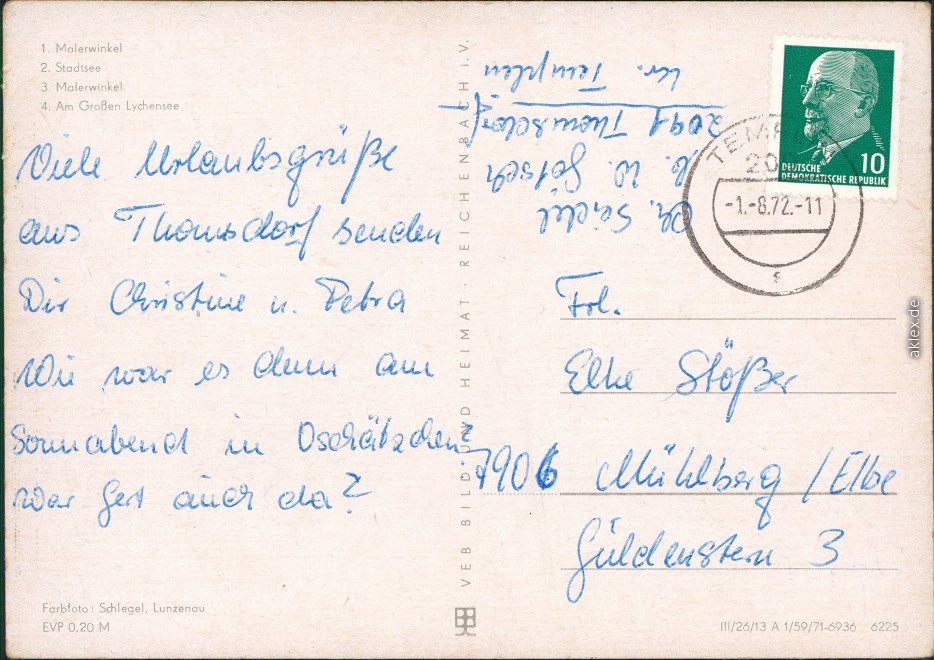 1. Malerwinkel
2. Stadtsee
3. Malerwinkel
4. Am Großen Lychensee
Viele Urlaubsgrüße
aus Thomsdorf senden
Dir Christine u. Petra
Wie war es denn am
Sonnabend in Oschätzchen?
War Gert auch da?
Farbfoto: Schlegel, Lunzenau
EVP 0,20 M
VEB BILD UND HEIMAT · REICHENBACH I. V.
Ch. Seidel
b. W. Götsch
2091 Thomsdorf
kr. Templin
DEUTSCHE
DEMOKRATISCHE REPUBLIK
10
TEMPLIN
20
-1.-8.72.-11
Frl.
Elke Stößer
7906 Mühlberg / Elbe
Güldenstern 3
III/26/13 A 1/59/71-6936 6225
aklex.de